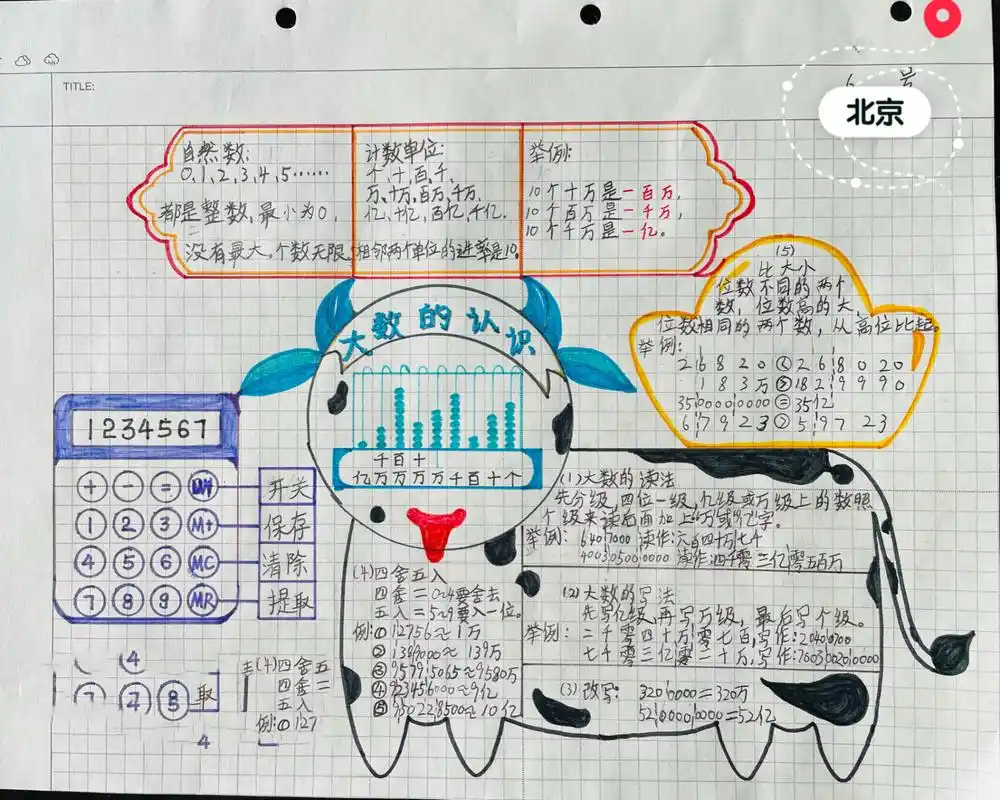 TITLE:
号
北京
自然数:
0,1,2,3,4,5……
都是整数,最小为0,
没有最大。个数无限
计数单位:
个、十,百,千,
万、十万,百万,千万,
亿、十亿,百亿,千亿.
相邻两个单位的进率是10。
举例:
10个十万是一百万,
10个百万是一千万,
10个千万是一亿。
(5)
比大小
位数不同的两个
数,位数高的大,
位数相同的两个数,从高位比起。
举例:
26820<268020
183万>1829990
3500000000=35亿
67923>59723
大数的认识
千百十
亿万万万万千百十个
1234567
+ - =
开关
1 2 3 M+
保存
4 5 6 MC
清除
7 8 9 MR
提取
(1)大数的读法
举例:
(2)大数的写法
先写亿级,再写万级,最后写个级。
举例:二千零四十万零七百,写作:20400700
七千零三亿零二十万,写作:700300200000
(3)改写:3200000=320万
5200000000=52亿
(4)四舍五入
四舍=0~4要舍去
五入=5~9要入一位。
例:①12756≈1万
②1389000≈139万
③95795065≈9580万
④923456000≈9亿
⑤950228500≈10亿
4
取
4
(4)四舍五
四舍=
五入
例:①127